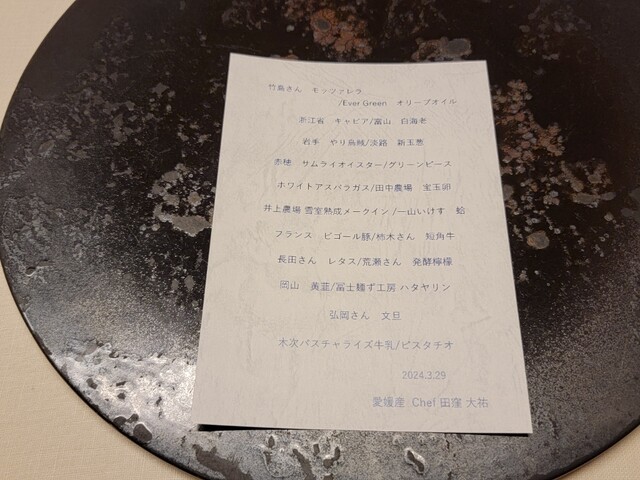 竹島さん　モッツァレラ
/Ever Green　オリーブオイル
浙江省　キャビア/富山　白海老
岩手　やり烏賊/淡路　新玉葱
赤穂　サムライオイスター/グリーンピース
ホワイトアスパラガス/田中農場　宝玉卵
井上農場 雪室熟成メークイン /一山いけす　蛤
フランス　ビゴール豚/柿木さん　短角牛
長田さん　レタス/荒瀬さん　発酵檸檬
岡山　黄韮/冨士麺ず工房 ハタヤリン
弘岡さん　文旦
木次パスチャライズ牛乳/ピスタチオ
2024.3.29
愛媛産　Chef 田窪 大祐